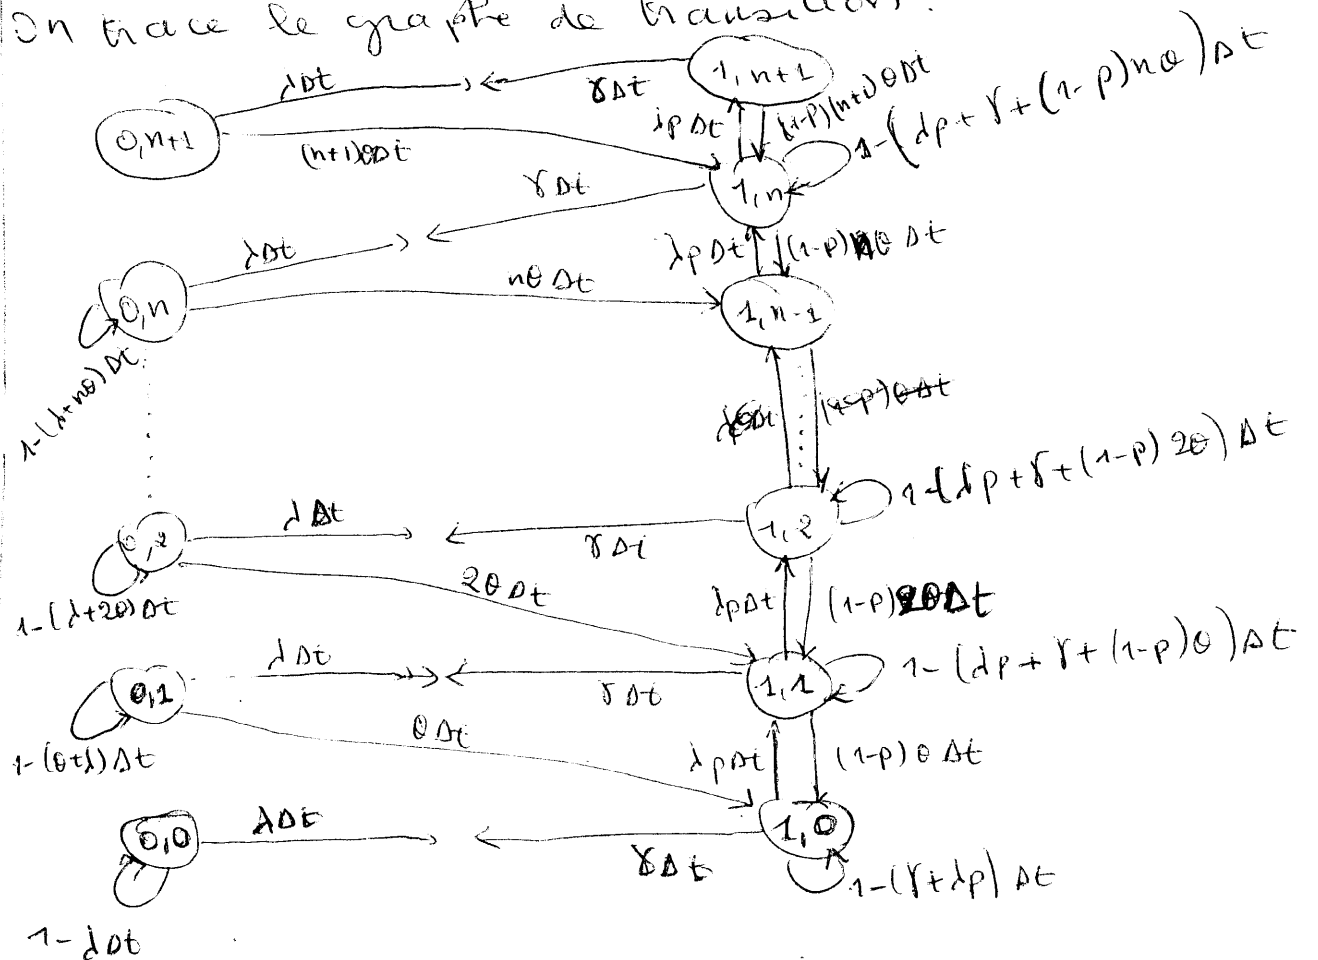 On trace le graphe de transition.
1, n+1
λΔt
γΔt
0, n+1
λpΔt
(1-p)(n+1)θΔt
1-(λp+γ+(1-p)nθ)Δt
(n+1)θΔt
γΔt
1, n
λΔt
λpΔt
(1-p)nθΔt
0, n
nθΔt
1, n-1
1-(λ+nθ)Δt
(1-p)θΔt
1-(λp+γ+(1-p)2θ)Δt
0, 2
λΔt
γΔt
1, 2
1-(λ+2θ)Δt
2θΔt
λpΔt
(1-p)2θΔt
0,1
λΔt
γΔt
1,1
1-(λp+γ+(1-p)θ)Δt
1-(θ+λ)Δt
θΔt
λpΔt
(1-p)θΔt
0,0
λΔt
γΔt
1,0
1-(γ+λp)Δt
1-λΔt